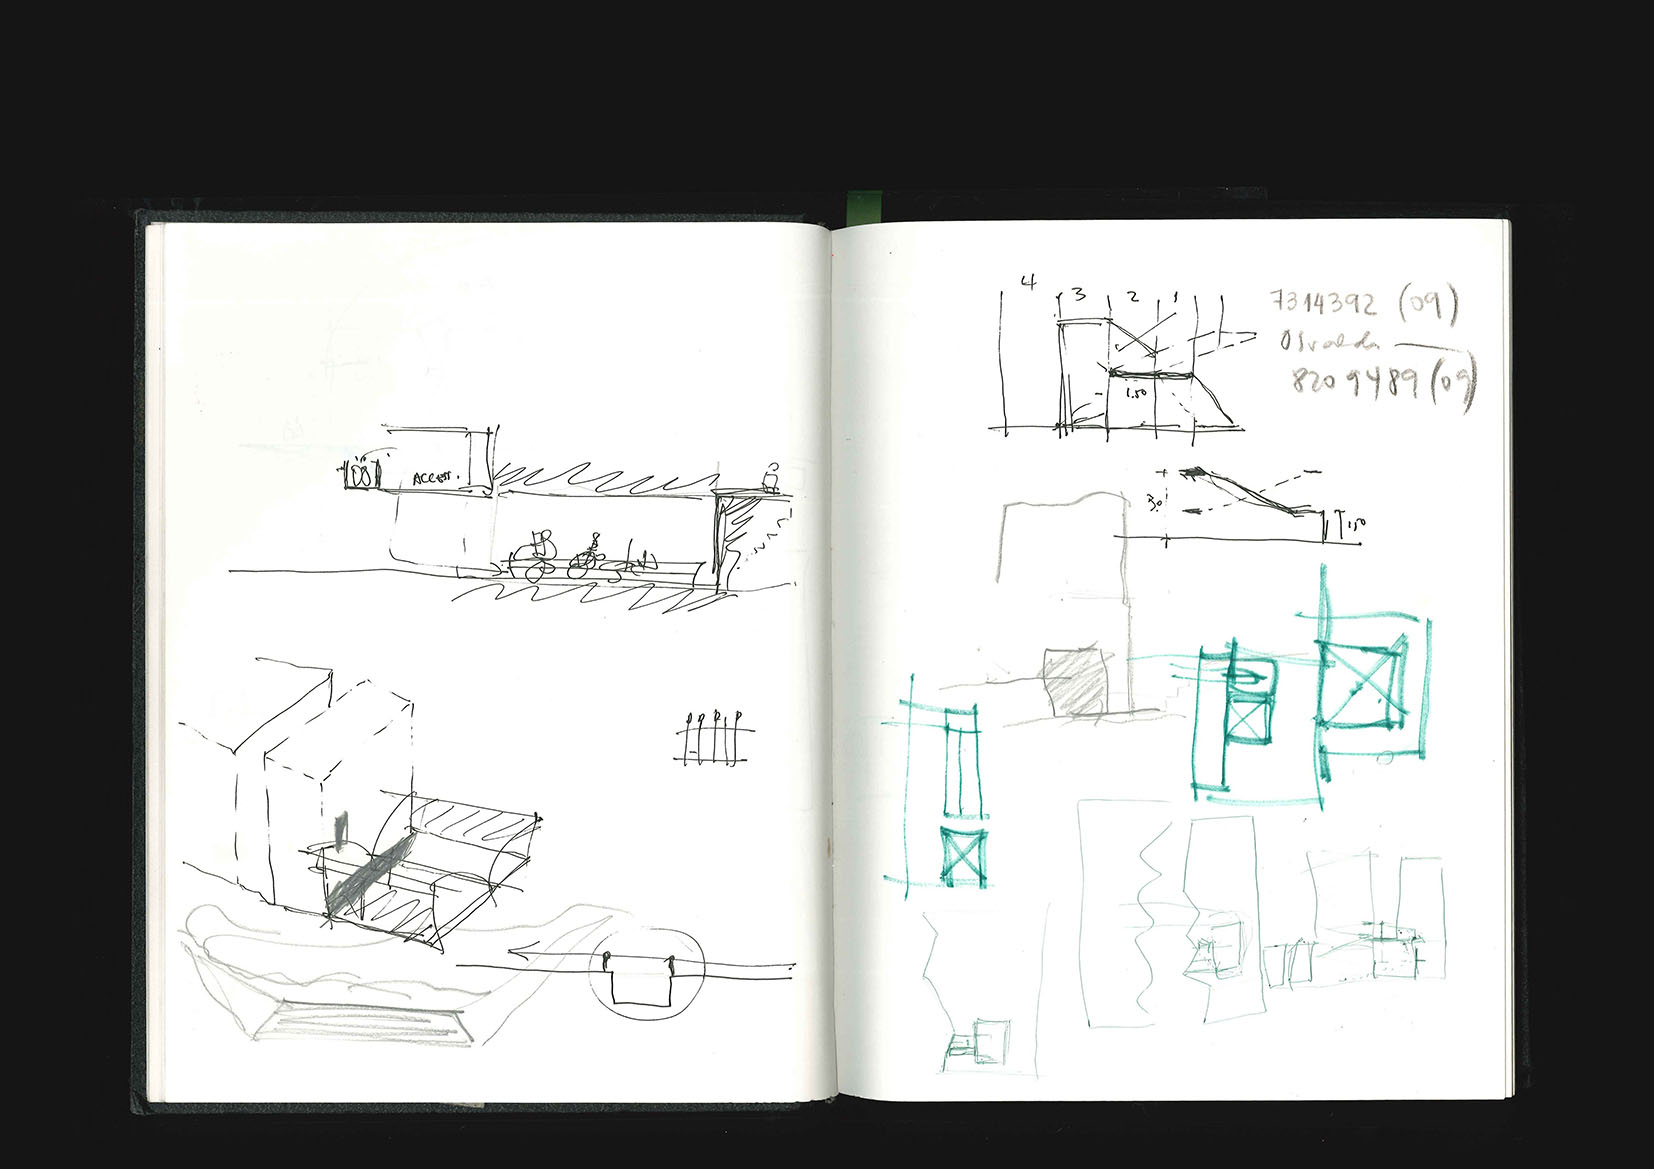 ACCESS.
4 3 2 1
1.50
7314392 (09)
Osvaldo
8209489 (09)
30
1,50